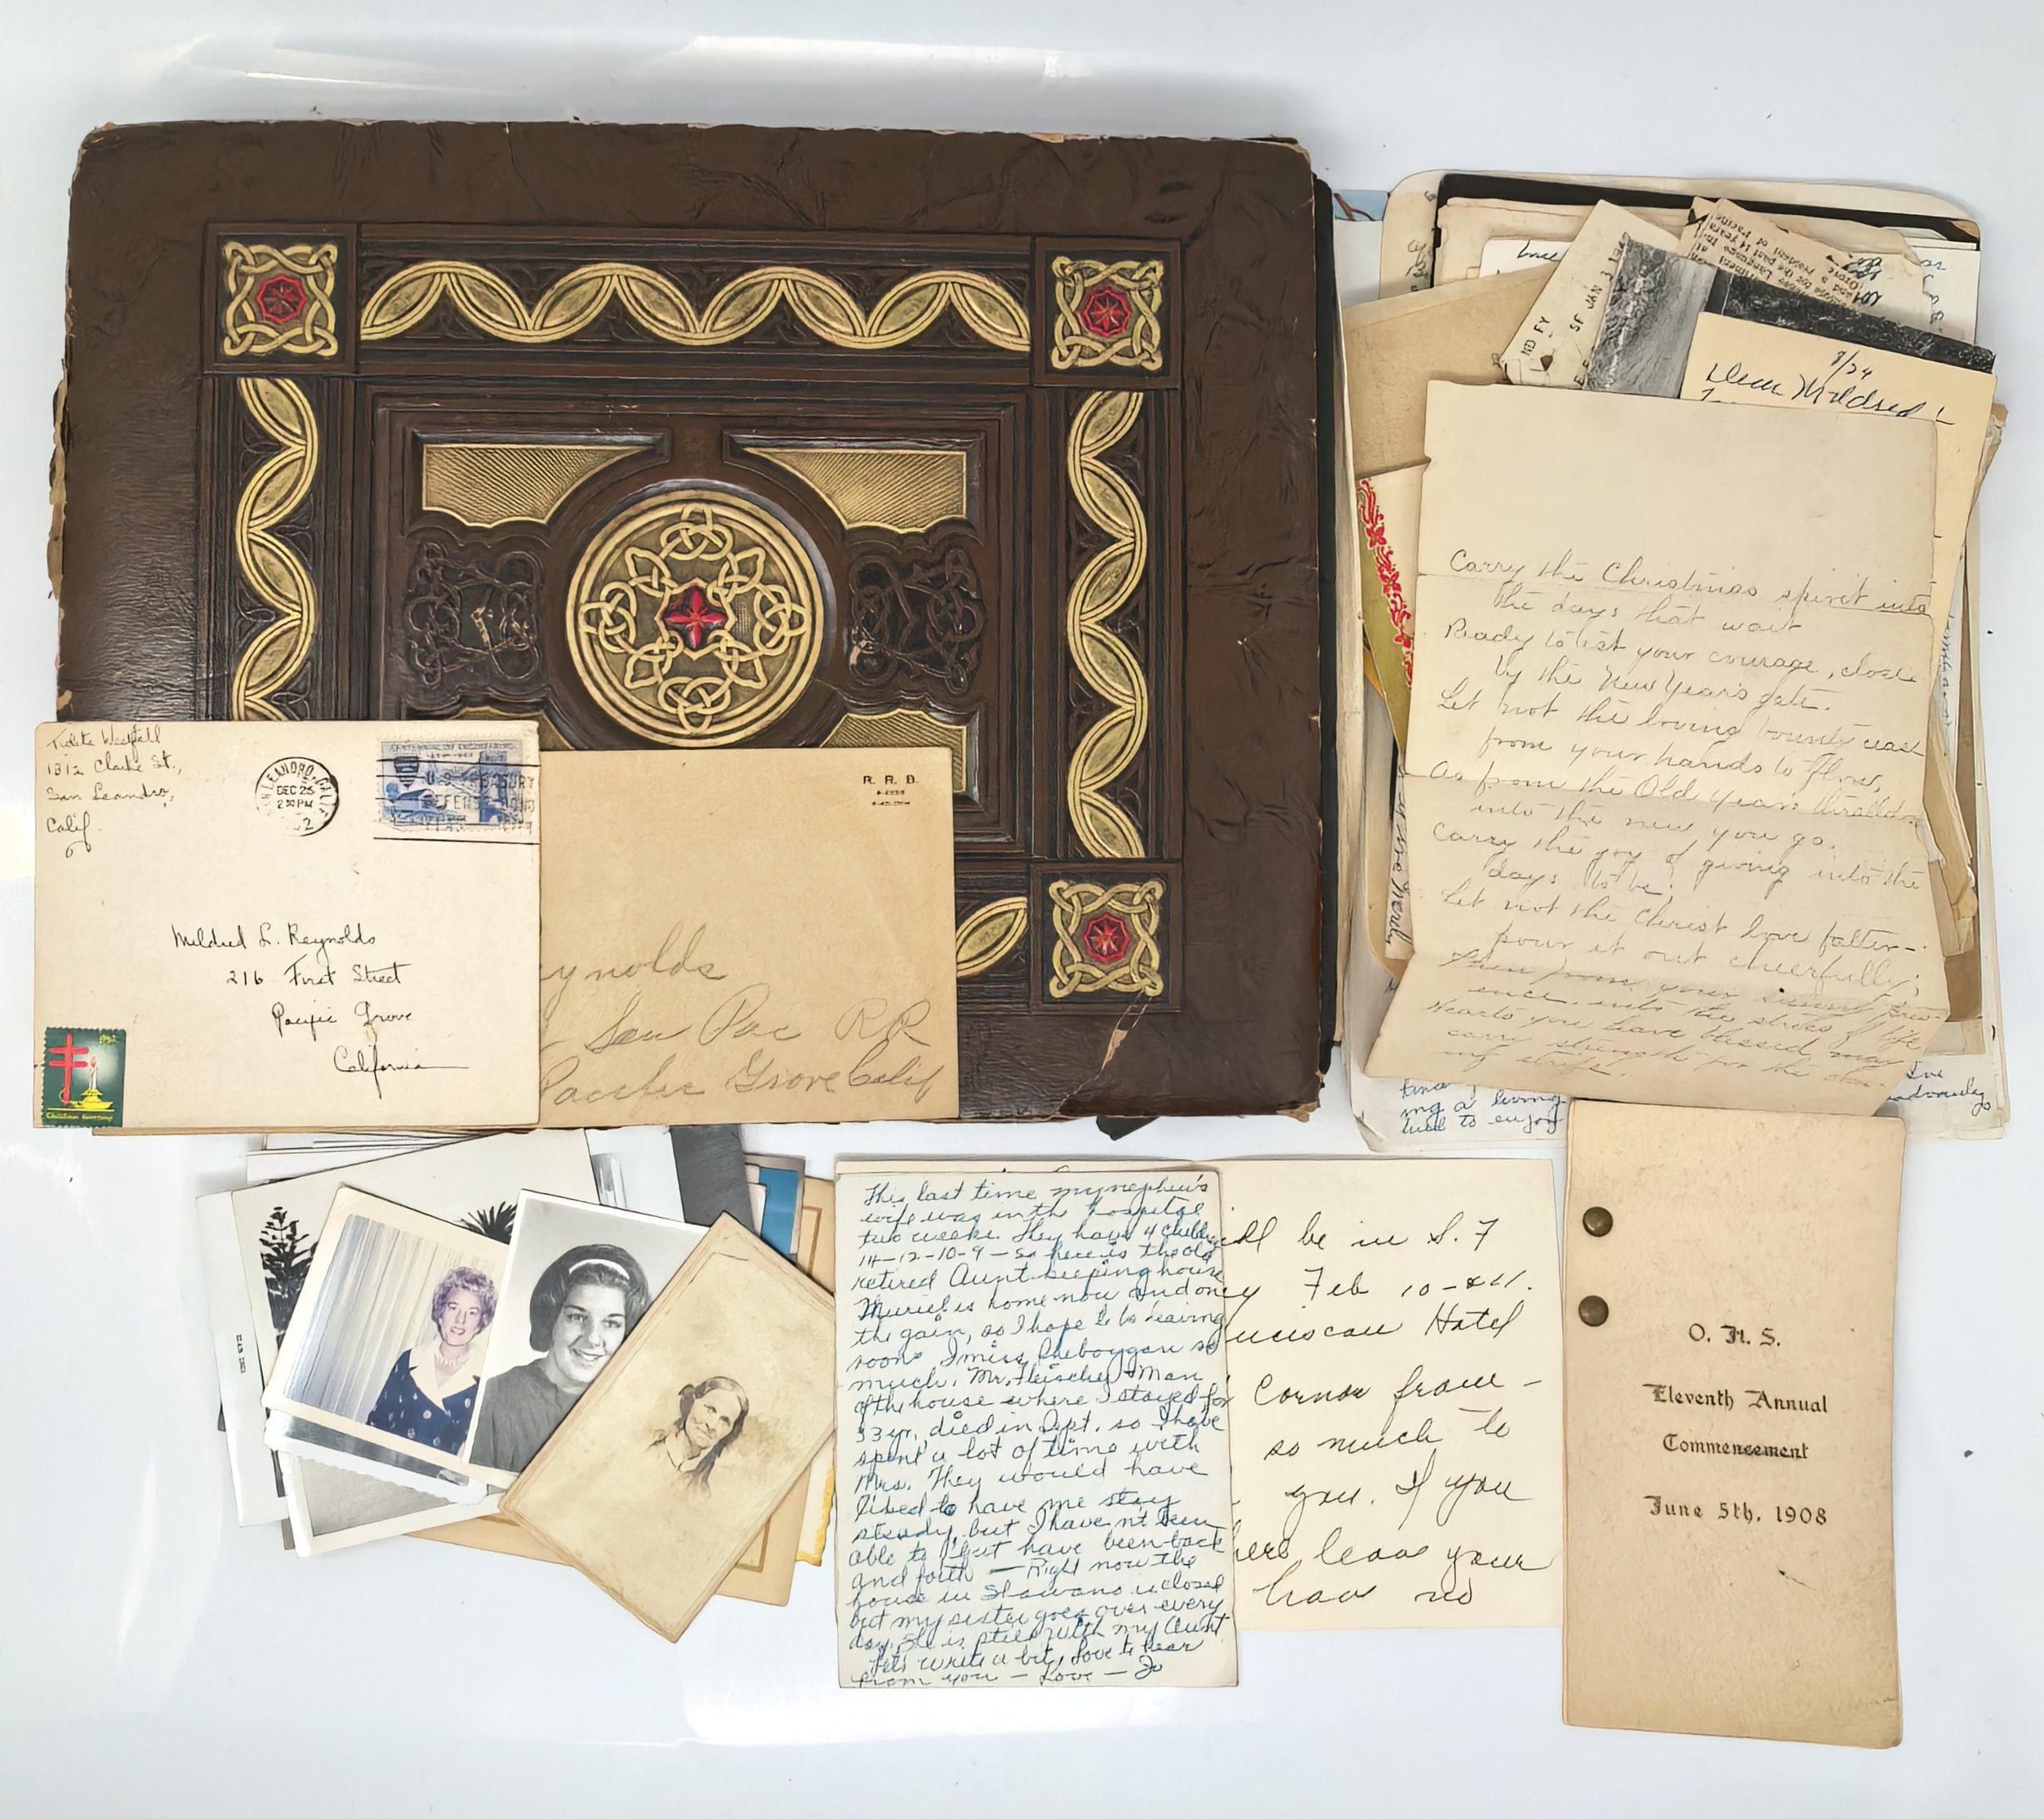 1312 Clarke St.,
San Leandro,
Calif.
SAN LEANDRO, CALIF.
DEC 26
2 30 PM
CENTENNIAL OF ENGINEERING
U.S. TREASURY
DEFENSE BONDS
Mildred L. Reynolds
216 First Street
Pacific Grove
California
1952
Christmas Greetings
R. R. B.
ynolds
Sou Pac RR
Pacific Grove Calif
ND FY
SF JAN 3
8/24
Dear Mildred
Carry the Christmas spirit into
the days that wait
Ready to test your courage, close
by the New Year's gate.
Let not the loving bounty cease
from your hands to flow,
As from the Old Year's thralldom
into the new you go.
Carry the joy of giving into the
days to be.
Let not the Christ love falter—
pour it out cheerfully;
Then from your
ence into the stress of life
Hearts you have blessed may
carry strength for the
ing strife.
ing a living
used to enjoy
This last time my nephew's
wife was in the hospital
two weeks. They have 4 children
14-12-10-9 — So here is the old
retired Aunt keeping house
Muriel is home now and on
the gain, so I hope to be leaving
soon. I miss Sheboygan so
much. Mr. Fleischer - Man
of the house where I stayed for
33 yr. died in Sept. so I have
spent a lot of time with
Mrs. They would have
liked to have me stay
steady, but I haven't been
able to but have been back
and forth — Right now the
house in Shawano is closed
but my sister goes over every
day. She is still with my Aunt
Let's write a bit, love to hear
from you — Love — Jo
ill be in S. F
y Feb 10-&11.
anciscan Hotel
Corner from —
so much to
you. If you
here leave your
have no
O. H. S.
Eleventh Annual
Commencement
June 5th, 1908